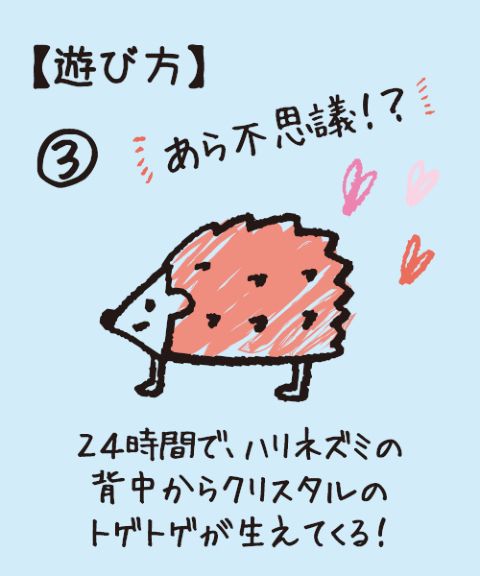 【遊び方】
③
あら不思議!?
24時間で、ハリネズミの
背中からクリスタルの
トゲトゲが生えてくる!